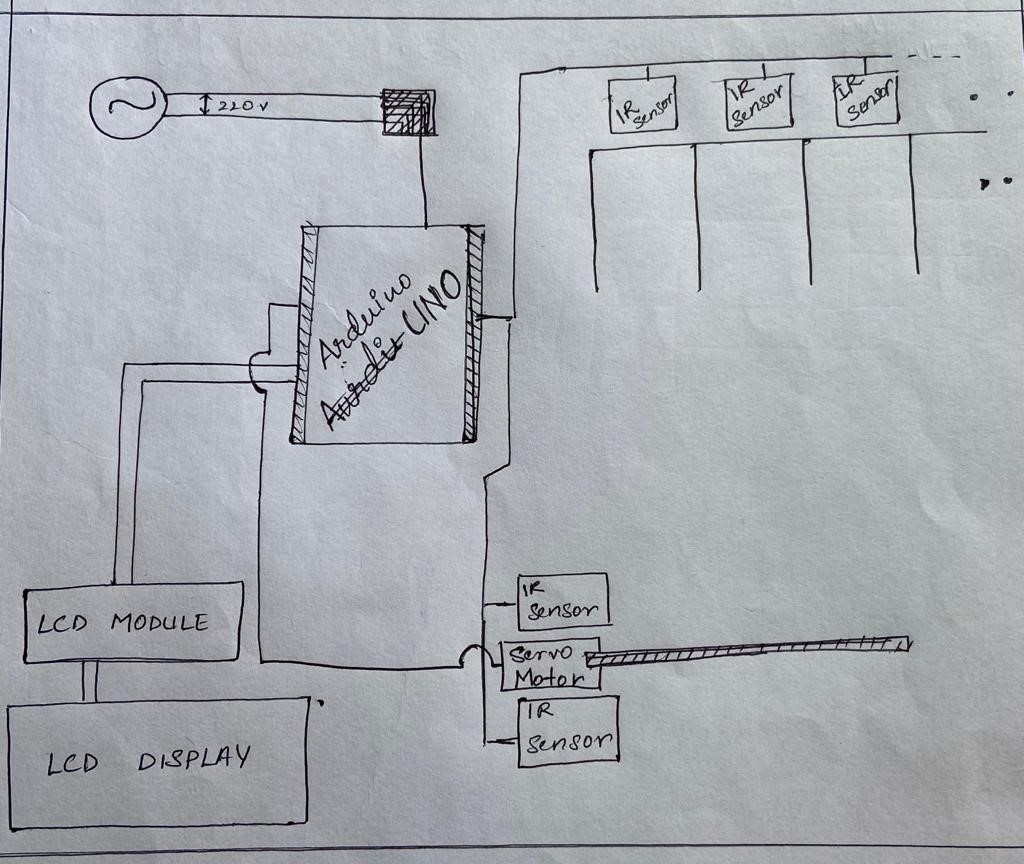 220 v
IR
Sensor
IR
Sensor
IR
Sensor
Arduino
UNO
LCD MODULE
LCD DISPLAY
IR
Sensor
Servo
Motor
IR
Sensor